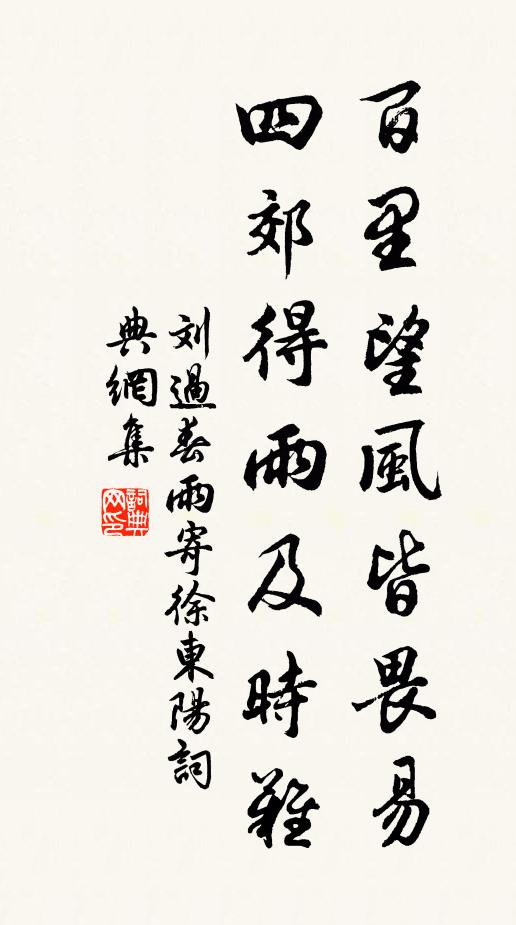 百里望風皆畏易
四郊得雨及時難
刘過春雨寄徐東陽詞
典網集
詞典网印